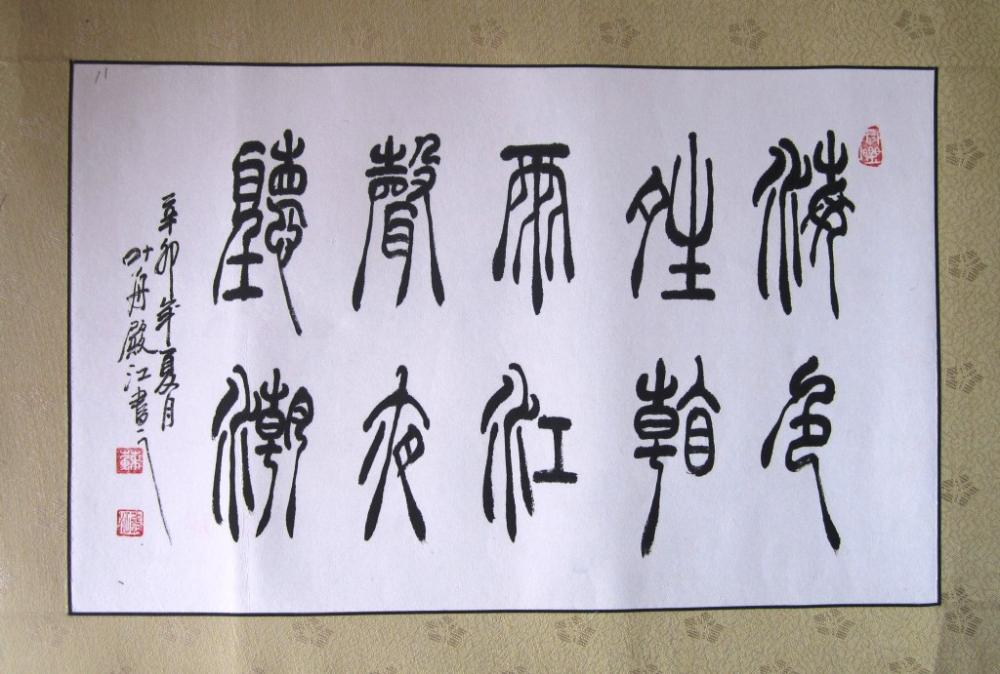 海色
晴看
雨江
聲夜
聽潮
辛卯年夏月
叶舟殿江書